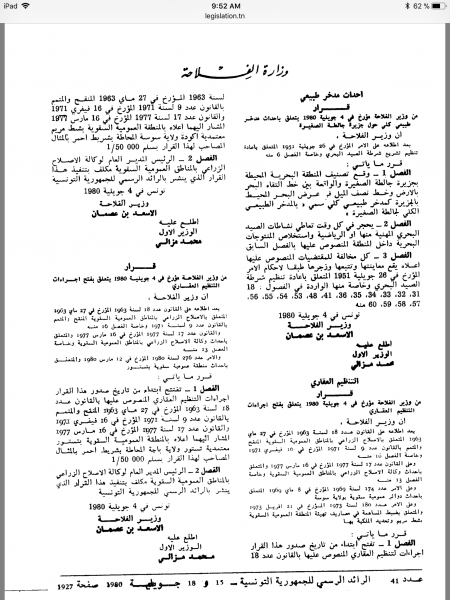 iPad
9:52 AM
62 %
legislation.tn
وزارة الفـلاحة
احداث مدخر طبيعي
قــرار
من وزير الفلاحة مؤرخ في 4 جويلية 1980 يتعلق باحداث مدخر
طبيعي كلي حول جزيرة جالطة الصغيرة
ان وزير الفلاحة ،
بعد اطلاعه على الامر المؤرخ في 26 جويلية 1951 المتعلق باعادة
تنظيم تشريع شرطة الصيد البحري وخاصة الفصل 6 منه
قرر ما يأتي :
الفصل 1 ـ وقع تصنيف المنطقة البحرية المحيطة
بجزيرة جالطة الصغيرة والواقعة بين خط التقاء البحر
بالارض وخط نصف الميل في عرض البحر المحيط
بالجزيرة كمدخر طبيعي كلي سمي « بالمدخر الطبيعي
الكلي لجالطة الصغيرة »
الفصل 2 ـ يحجر في كل وقت تعاطي نشاطات الصيد
البحري المهنية منها او الرياضية واستخلاص المنتوجات
البحرية داخل المنطقة المنصوص عليها بالفصل السابق
الفصل 3 ـ كل مخالفة للمقتضيات المنصوص عليها
اعلاه يقع معاينتها وتتبعها وزجرها طبقا لاحكام الامر
المؤرخ في 26 جويلية 1951 المتعلق باعادة تنظيم شرطة
الصيد البحري وخاصة منها الواردة في الفصول : 18
31، 32، 33، 34، 35، 36، 41، 48، 53، 54، 55، 56،
57، 58، 59، 60 منه
تونس في 4 جويلية 1980
وزير الفــلاحــة
الاسعد بن عصمان
اطلع عليه
الوزير الاول
محمد مزالي
التنظيم العقاري
قــرار
من وزير الفلاحة مؤرخ في 4 جويلية 1980 يتعلق بفتح اجراءات
التنظيم العقاري
ان وزير الفلاحة ،
بعد اطلاعه على القانون عدد 18 لسنة 1963 المؤرخ في 27 ماي
1963 المتعلق بالاصلاح الزراعي بالمناطق العمومية السقوية المنقح
والمتمم بالقانون عدد 9 لسنة 1971 المؤرخ في 16 فيفري 1971
وخاصة الفصل 16 منه
وعلى القانون عدد 17 لسنة 1977 المؤرخ في 16 مارس 1977 والمتعلق
باحداث وكالة الاصلاح الزراعي بالمناطق العمومية السقوية وخاصة
الفصل 13 منه
وعلى الامر عدد 174 لسنة 1969 المؤرخ في 8 ماي 1969 المتعلق
باحداث دوائر عمومية سقوية بولاية سوسة
وعلى الامر عدد 180 لسنة 1973 المؤرخ في 21 افريل 1973
والمتعلق بضبط المساهمة في مصاريف تهيئة المنطقة العمومية السقوية
بشط مريم وتحديد الملكية بها
قرر ما يأتي :
الفصل 1 ـ تفتح ابتداء من تاريخ صدور هذا القرار
اجراءات لتنظيم العقاري المنصوص عليها بالقانون عدد 18
لسنة 1963 المؤرخ في 27 ماي 1963 المنقح والمتمم
بالقانون عدد 9 لسنة 1971 المؤرخ في 16 فيفري 1971
والقانون عدد 17 لسنة 1977 المؤرخ في 16 مارس 1977
المشار اليهما اعلاه بالمنطقة العمومية السقوية بشط مريم
معتمدية اكودة ولاية سوسة المحاطة بشريط احمر بالمثال
المصاحب لهذا القرار بسلم 1/50 000
الفصل 2 ـ الرئيس المدير العام لوكالة الاصلاح
الزراعي بالمناطق العمومية السقوية مكلف بتنفيذ هذا
القرار الذي ينشر بالرائد الرسمي للجمهورية التونسية
تونس في 4 جويلية 1980
وزير الفــلاحــة
الاسعد بن عصمان
اطلع عليه
الوزير الاول
محمد مزالي
قــرار
من وزير الفلاحة مؤرخ في 4 جويلية 1980 يتعلق بفتح اجراءات
التنظيم العقاري
ان وزير الفلاحة ،
بعد اطلاعه على القانون عدد 18 لسنة 1963 المؤرخ في 27 ماي 1963
المتعلق بالاصلاح الزراعي بالمناطق العمومية السقوية المنقح والمتمم
بالقانون عدد 9 لسنة 1971 وخاصة الفصل 16 منه
وعلى القانون عدد 17 لسنة 1977 المؤرخ في 16 مارس 1977 والمتعلق
باحداث وكالة الاصلاح الزراعي بالمناطق العمومية السقوية وخاصة
الفصل 13 منه
وعلى الامر عدد 276 لسنة 1980 المؤرخ في 12 مارس 1980 والمتعلق
باحداث منطقة عمومية سقوية بتستور
قرر ما يأتي :
الفصل 1 ـ تفتتح ابتداء من تاريخ صدور هذا القرار
اجراءات التنظيم العقاري المنصوص عليها بالقانون عدد
18 لسنة 1963 المؤرخ في 27 ماي 1963 المنقح والمتمم
بالقانون عدد 9 لسنة 1971 المؤرخ في 16 فيفري 1971
والقانون عدد 17 لسنة 1977 المؤرخ في 16 مارس 1977
المشار اليهما اعلاه بالمنطقة العمومية السقوية بتستور
معتمدية تستور ولاية باجة المحاطة بشريط احمر بالمثال
المصاحب لهذا القرار بسلم 1/50 000
الفصل 2 ـ الرئيس المدير العام لوكالة الاصلاح الزراعي
بالمناطق العمومية السقوية مكلف بتنفيذ هذا القرار الذي
ينشر بالرائد الرسمي للجمهورية التونسية
تونس في 4 جويلية 1980
وزير الفــلاحــة
الاسعد بن عصمان
اطلع عليه
الوزير الاول
محمد مزالي
عــدد 41 الرائد الرسمي للجمهورية التونسية ـ 15 و 18 جويلية 1980 صفحة 1927